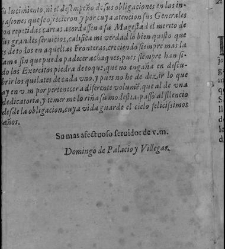 lucimiento, ni el desempeño de sus obligaciones en las in-
uasiones que se ofrecieron, y por cuya atencion sus Generales
en repetidas cartas acordassen a su Magestad el merito de
sus grandes seruicios, calificò me verdad lo bien quisto que
dexò los en aquellas Fronteras, creciendo siempre mas la
fama sin que pueda padecer achaques, pues siempre han si-
do los Exercitos piedra de toque, que no engaña en descu-
brir los quilates de cada vno, y pues no he de dezir lo que
ay en v.m. por pertenecer a diferente volumen, que al de vna
dedicatoria, y temer me lo riña su modestia, passo al silencio
desde la obligacion, cuya vida guarde el cielo felicissimos
años.
Su mas afectuoso seruidor de v.m.
Domingo de Palacio y Villegas.